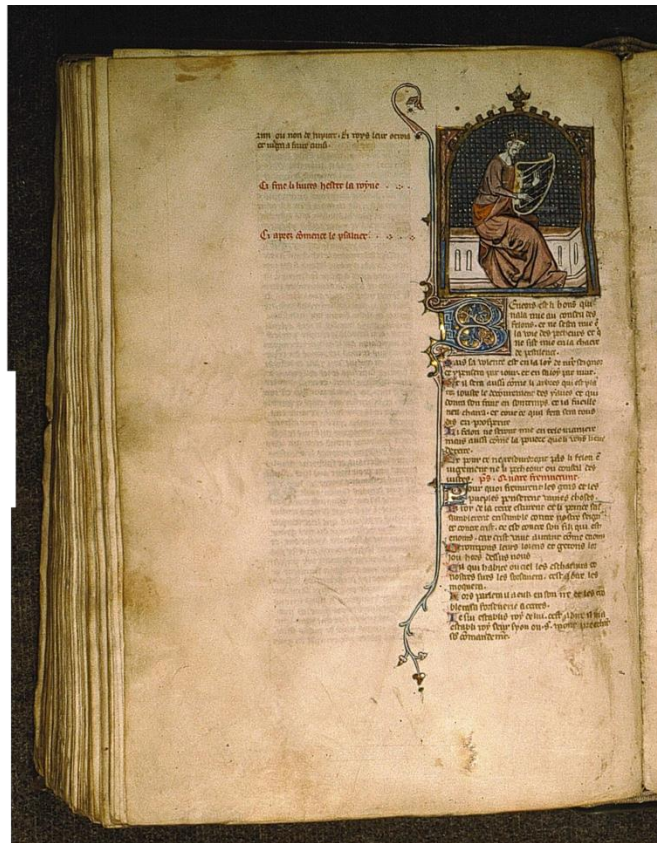 ou non de
et
Ci fine li livres hester la royne
Ci apres cõmence le psaltier
Eneois est li hons qui
nala mie au conseil des
felons. et ne sesta mie ẽ
la voie des pecheurs et q̃
ne sist mie en la chaiere
de pestilence.
Mais sa volente est en la loy de nr̃e seigneur
et pensera par iour. et en sa loy par nuit.
Et il sera aussi cõme li arbres qui est
iouste le decourement des yaues et qui
donra son fruit en son temps et sa fueille
ne charra. et tout ce qui fera sera tous
dis en prosperite
Li felon ne seront mie en tele maniere
mais aussi cõme la poudre que li vens lieue
de terre.
Et pour ce ne pas li felon ẽ
iugement ne li pecheour ou conseil des
iustes. ps. Quare fremuerunt
Pour quoi fremirent les gens et les
pueples penserent vaines choses.
Li roy de la terre esturent et li prince
sassamblerent ensemble contre nostre
et contre crist. ce est contre son filz qui est
enoins. car crist vaut autant cõme enoins
Derompons leurs loiens et getons leur
iou hors dessus nous
Cil qui habite ou ciel les escharnira et
nostre sires les cest a dire les
moquera.
Lors parlera il a eulz en son ire et les
Ie sui establis roy de lui. cest a dire il ma
establi roy seur syon
ses cõmandemẽs